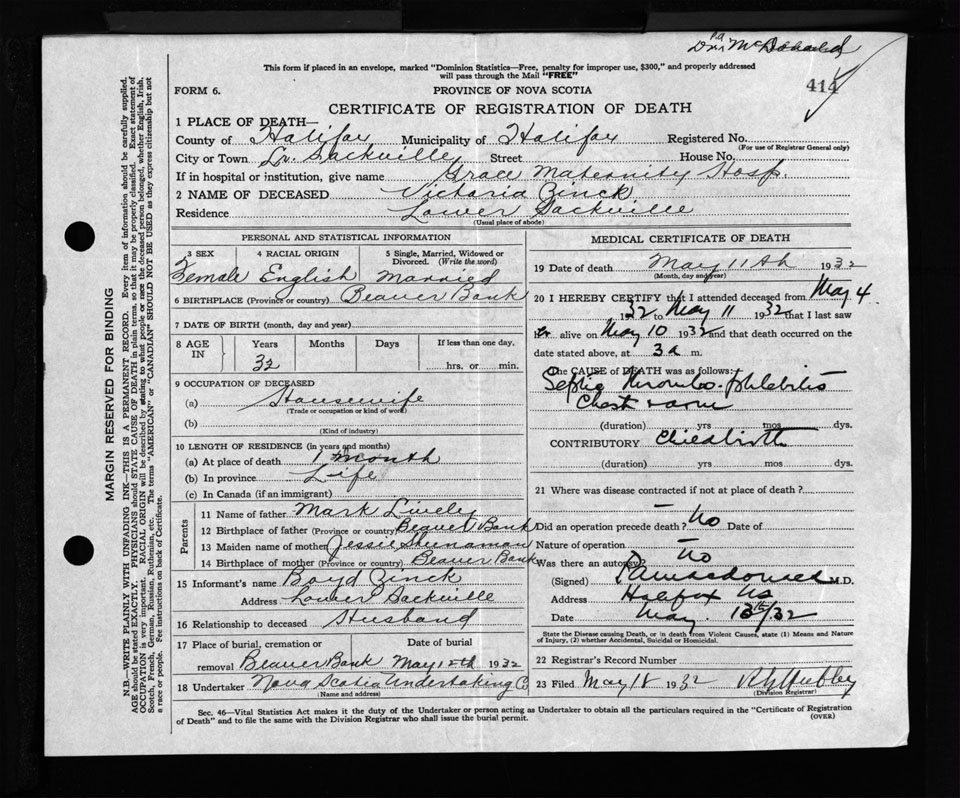 Dr. McDonald
This form if placed in an envelope, marked "Dominion Statistics—Free, penalty for improper use, $300," and properly addressed
will pass through the Mail "FREE"
414
FORM 6.
PROVINCE OF NOVA SCOTIA
CERTIFICATE OF REGISTRATION OF DEATH
1 PLACE OF DEATH—
County of Halifax Municipality of Halifax Registered No.
(For use of Registrar General only)
City or Town Lr. Sackville Street House No.
If in hospital or institution, give name Grace Maternity Hosp.
2 NAME OF DECEASED Victoria Zinck
Residence Lower Sackville
(Usual place of abode)
PERSONAL AND STATISTICAL INFORMATION
3 SEX 4 RACIAL ORIGIN 5 Single, Married, Widowed or Divorced. (Write the word)
Female English Married
6 BIRTHPLACE (Province or country) Beaver Bank
7 DATE OF BIRTH (month, day and year)
8 AGE IN Years Months Days If less than one day,
32 hrs. or min.
9 OCCUPATION OF DECEASED
(a) Housewife
(Trade or occupation or kind of work)
(b)
(Kind of industry)
10 LENGTH OF RESIDENCE (in years and months)
(a) At place of death 1 month
(b) In province Life
(c) In Canada (if an immigrant)
Parents
11 Name of father Mark Lively
12 Birthplace of father (Province or country) Beaver Bank
13 Maiden name of mother Jessie
14 Birthplace of mother (Province or country) Beaver Bank
15 Informant's name Boyd Zinck
Address Lower Sackville
16 Relationship to deceased Husband
17 Place of burial, cremation or Date of burial
removal Beaver Bank May 12th 1932
18 Undertaker Nova Scotia Undertaking Co
(Name and address)
MEDICAL CERTIFICATE OF DEATH
19 Date of death May 11th 1932
(Month, day and year)
20 I HEREBY CERTIFY that I attended deceased from May 4
1932 to May 11 1932 that I last saw
her alive on May 10 1932 and that death occurred on the
date stated above, at 3 a m.
The CAUSE of DEATH was as follows:
Septic thrombo-phlebitis
(duration) yrs mos dys.
CONTRIBUTORY Childbirth
(duration) yrs mos dys.
21 Where was disease contracted if not at place of death?
Did an operation precede death? No Date of
Nature of operation —
Was there an autopsy? No
(Signed) M.D.
Address Halifax NS
Date May 13th/32
State the Disease causing Death, or in death from Violent Causes, state (1) Means and Nature
of Injury, (2) whether Accidental, Suicidal or Homicidal.
22 Registrar's Record Number
23 Filed May 18 1932
(Division Registrar)
Sec. 46—Vital Statistics Act makes it the duty of the Undertaker or person acting as Undertaker to obtain all the particulars required in the "Certificate of Registration
of Death" and to file the same with the Division Registrar who shall issue the burial permit.
(OVER)
MARGIN RESERVED FOR BINDING
N.B.—WRITE PLAINLY WITH UNFADING INK—THIS IS A PERMANENT RECORD. Every item of information should be carefully supplied.
AGE should be stated EXACTLY. PHYSICIANS should STATE CAUSE OF DEATH in plain terms, so that it may be properly classified. Exact statement of
OCCUPATION is very important. RACIAL ORIGIN will be described by stating to what people or race the deceased person belonged, whether English, Irish,
Scotch, French, German, Russian, Ruthenian, etc. The terms "AMERICAN" or "CANADIAN" SHOULD NOT BE USED as they express citizenship but not
a race or people. See instructions on back of Certificate.